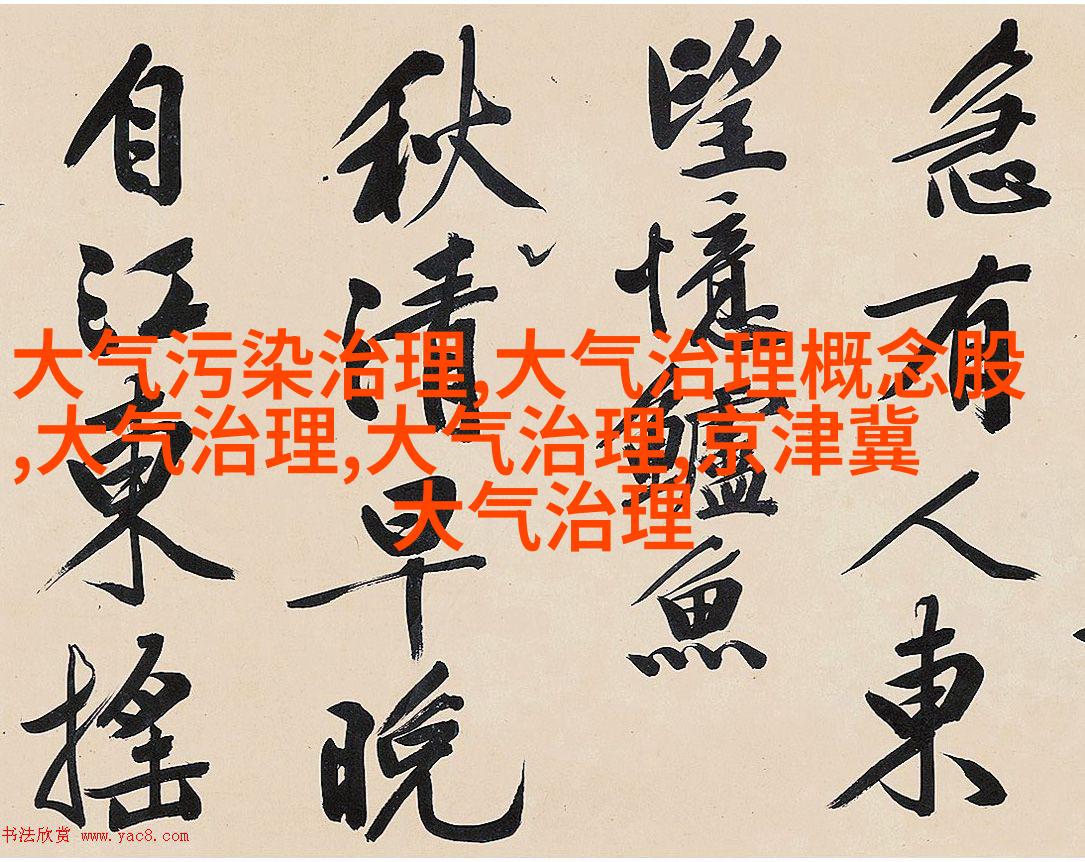 急有人東
望憶鱸魚
秋清早晚
自江東搖
大气污染治理,大气治理概念股
,大气治理,大气治理,京津冀
大气治理
书法欣赏 www.yac8.com